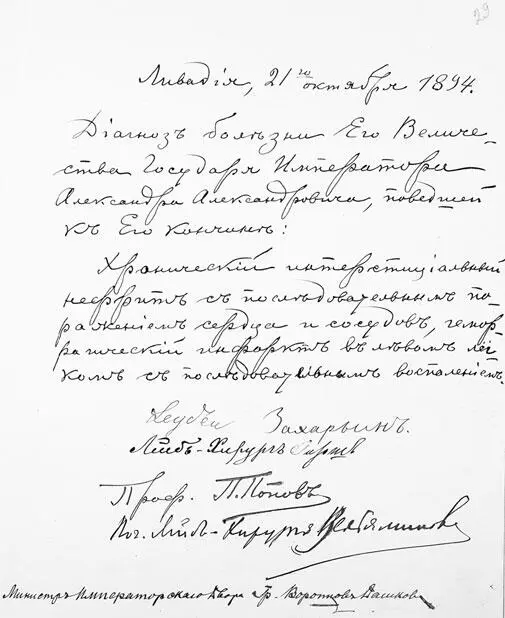 29
Ливадія, 21го октября 1894.
Діагнозъ болѣзни Его Величе-
ства Государя Императора
Александра Александровича, поведшей
къ Его кончинѣ:
Хроническій интерстиціальный
нефритъ съ послѣдовательнымъ по-
раженіемъ сердца и сосудовъ, гемор-
рагическій инфарктъ въ лѣвомъ лег-
комъ съ послѣдовательнымъ воспаленіемъ.
Лейденъ Захарьинъ.
Лейбъ-Хирургъ Гиршъ
Проф. П. Поповъ
Поч. Лейбъ-Хирургъ Вельяминовъ
Министръ Императорскаго Двора Гр. Воронцовъ Дашковъ